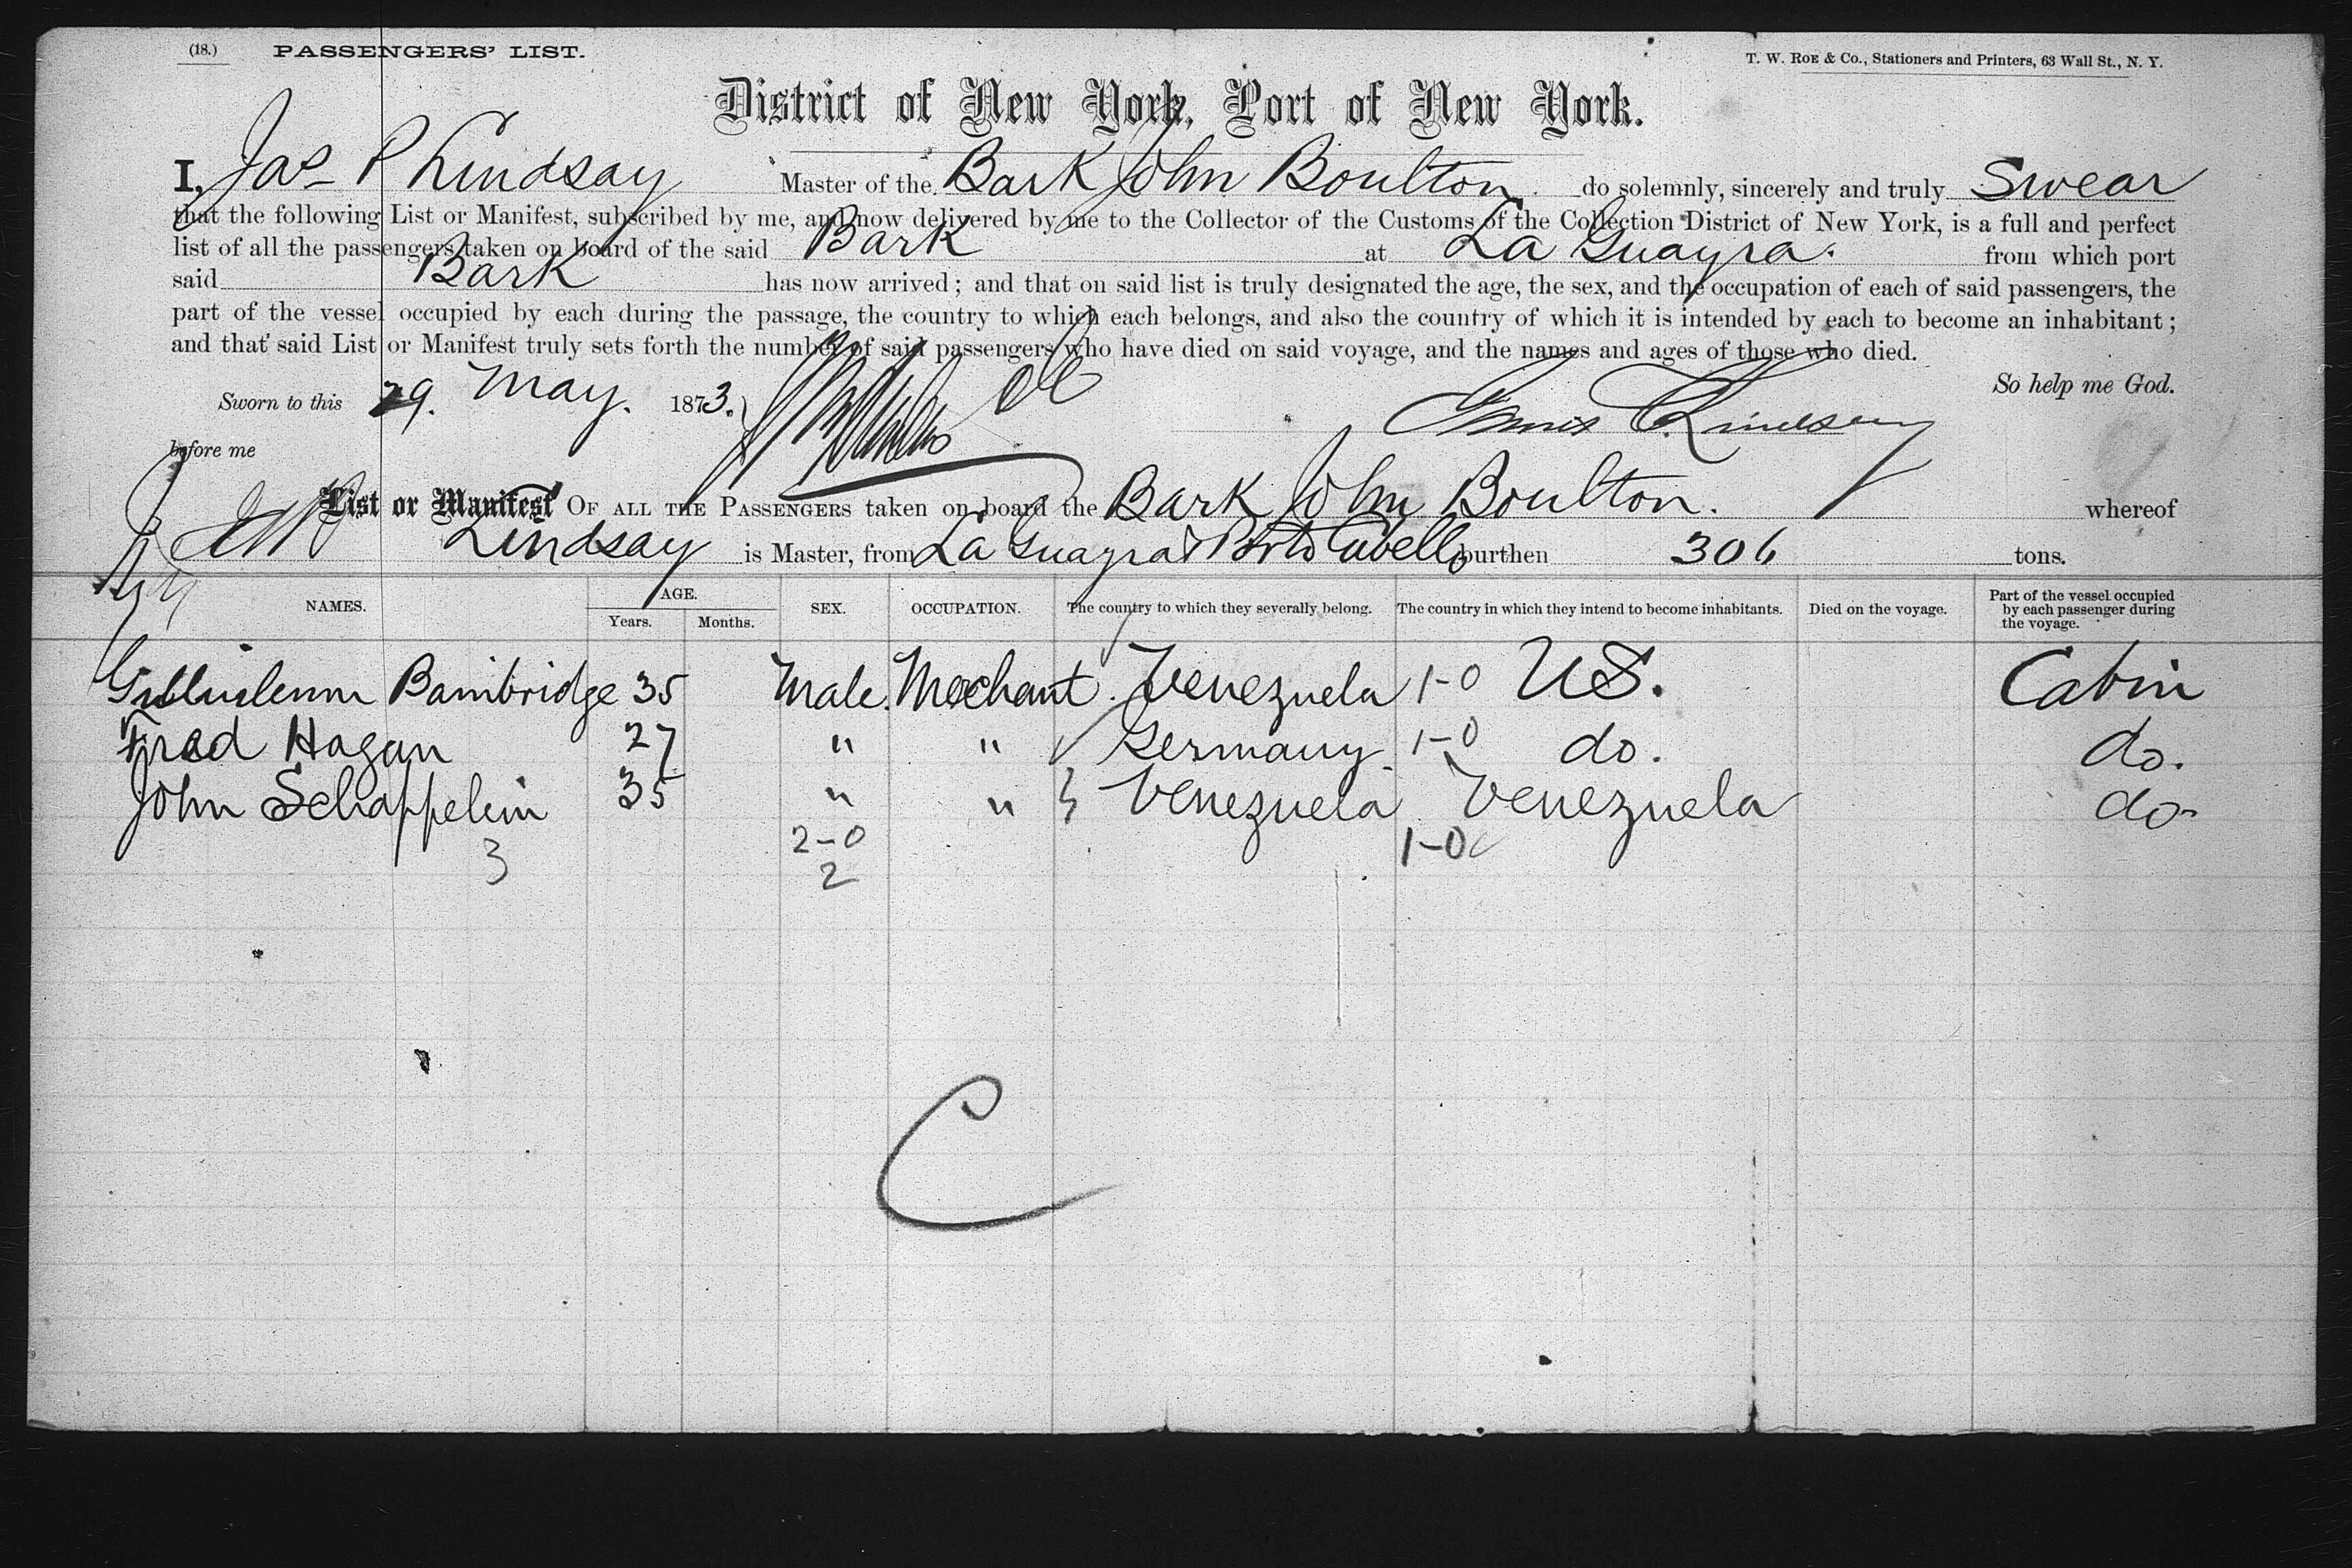 (18.) PASSENGERS' LIST.
T. W. ROE & Co., Stationers and Printers, 63 Wall St., N. Y.
District of New York, Port of New York.
I, Jas P Lindsay Master of the Bark John Boulton do solemnly, sincerely and truly Swear
that the following List or Manifest, subscribed by me, and now delivered by me to the Collector of the Customs of the Collection District of New York, is a full and perfect
list of all the passengers taken on board of the said Bark at La Guayra. from which port
said Bark has now arrived; and that on said list is truly designated the age, the sex, and the occupation of each of said passengers, the
part of the vessel occupied by each during the passage, the country to which each belongs, and also the country of which it is intended by each to become an inhabitant;
and that said List or Manifest truly sets forth the number of said passengers who have died on said voyage, and the names and ages of those who died.
So help me God.
Sworn to this 29. May. 1873.
Lindsay
before me
List or Manifest OF ALL THE PASSENGERS taken on board the Bark John Boulton. whereof
Lindsay is Master, from La Guayra & Porto Cabello burthen 306 tons.
NAMES. AGE. Years. Months. SEX. OCCUPATION. The country to which they severally belong. The country in which they intend to become inhabitants. Died on the voyage. Part of the vessel occupied by each passenger during the voyage.
Bambridge 35 Male. Mechant. Venezuela 1-0 US. Cabin
Fred Hagan 27 " " Germany 1-0 do. do.
John Schappelein 35 " " Venezuela Venezuela do
3 2-0 1-0
2
C